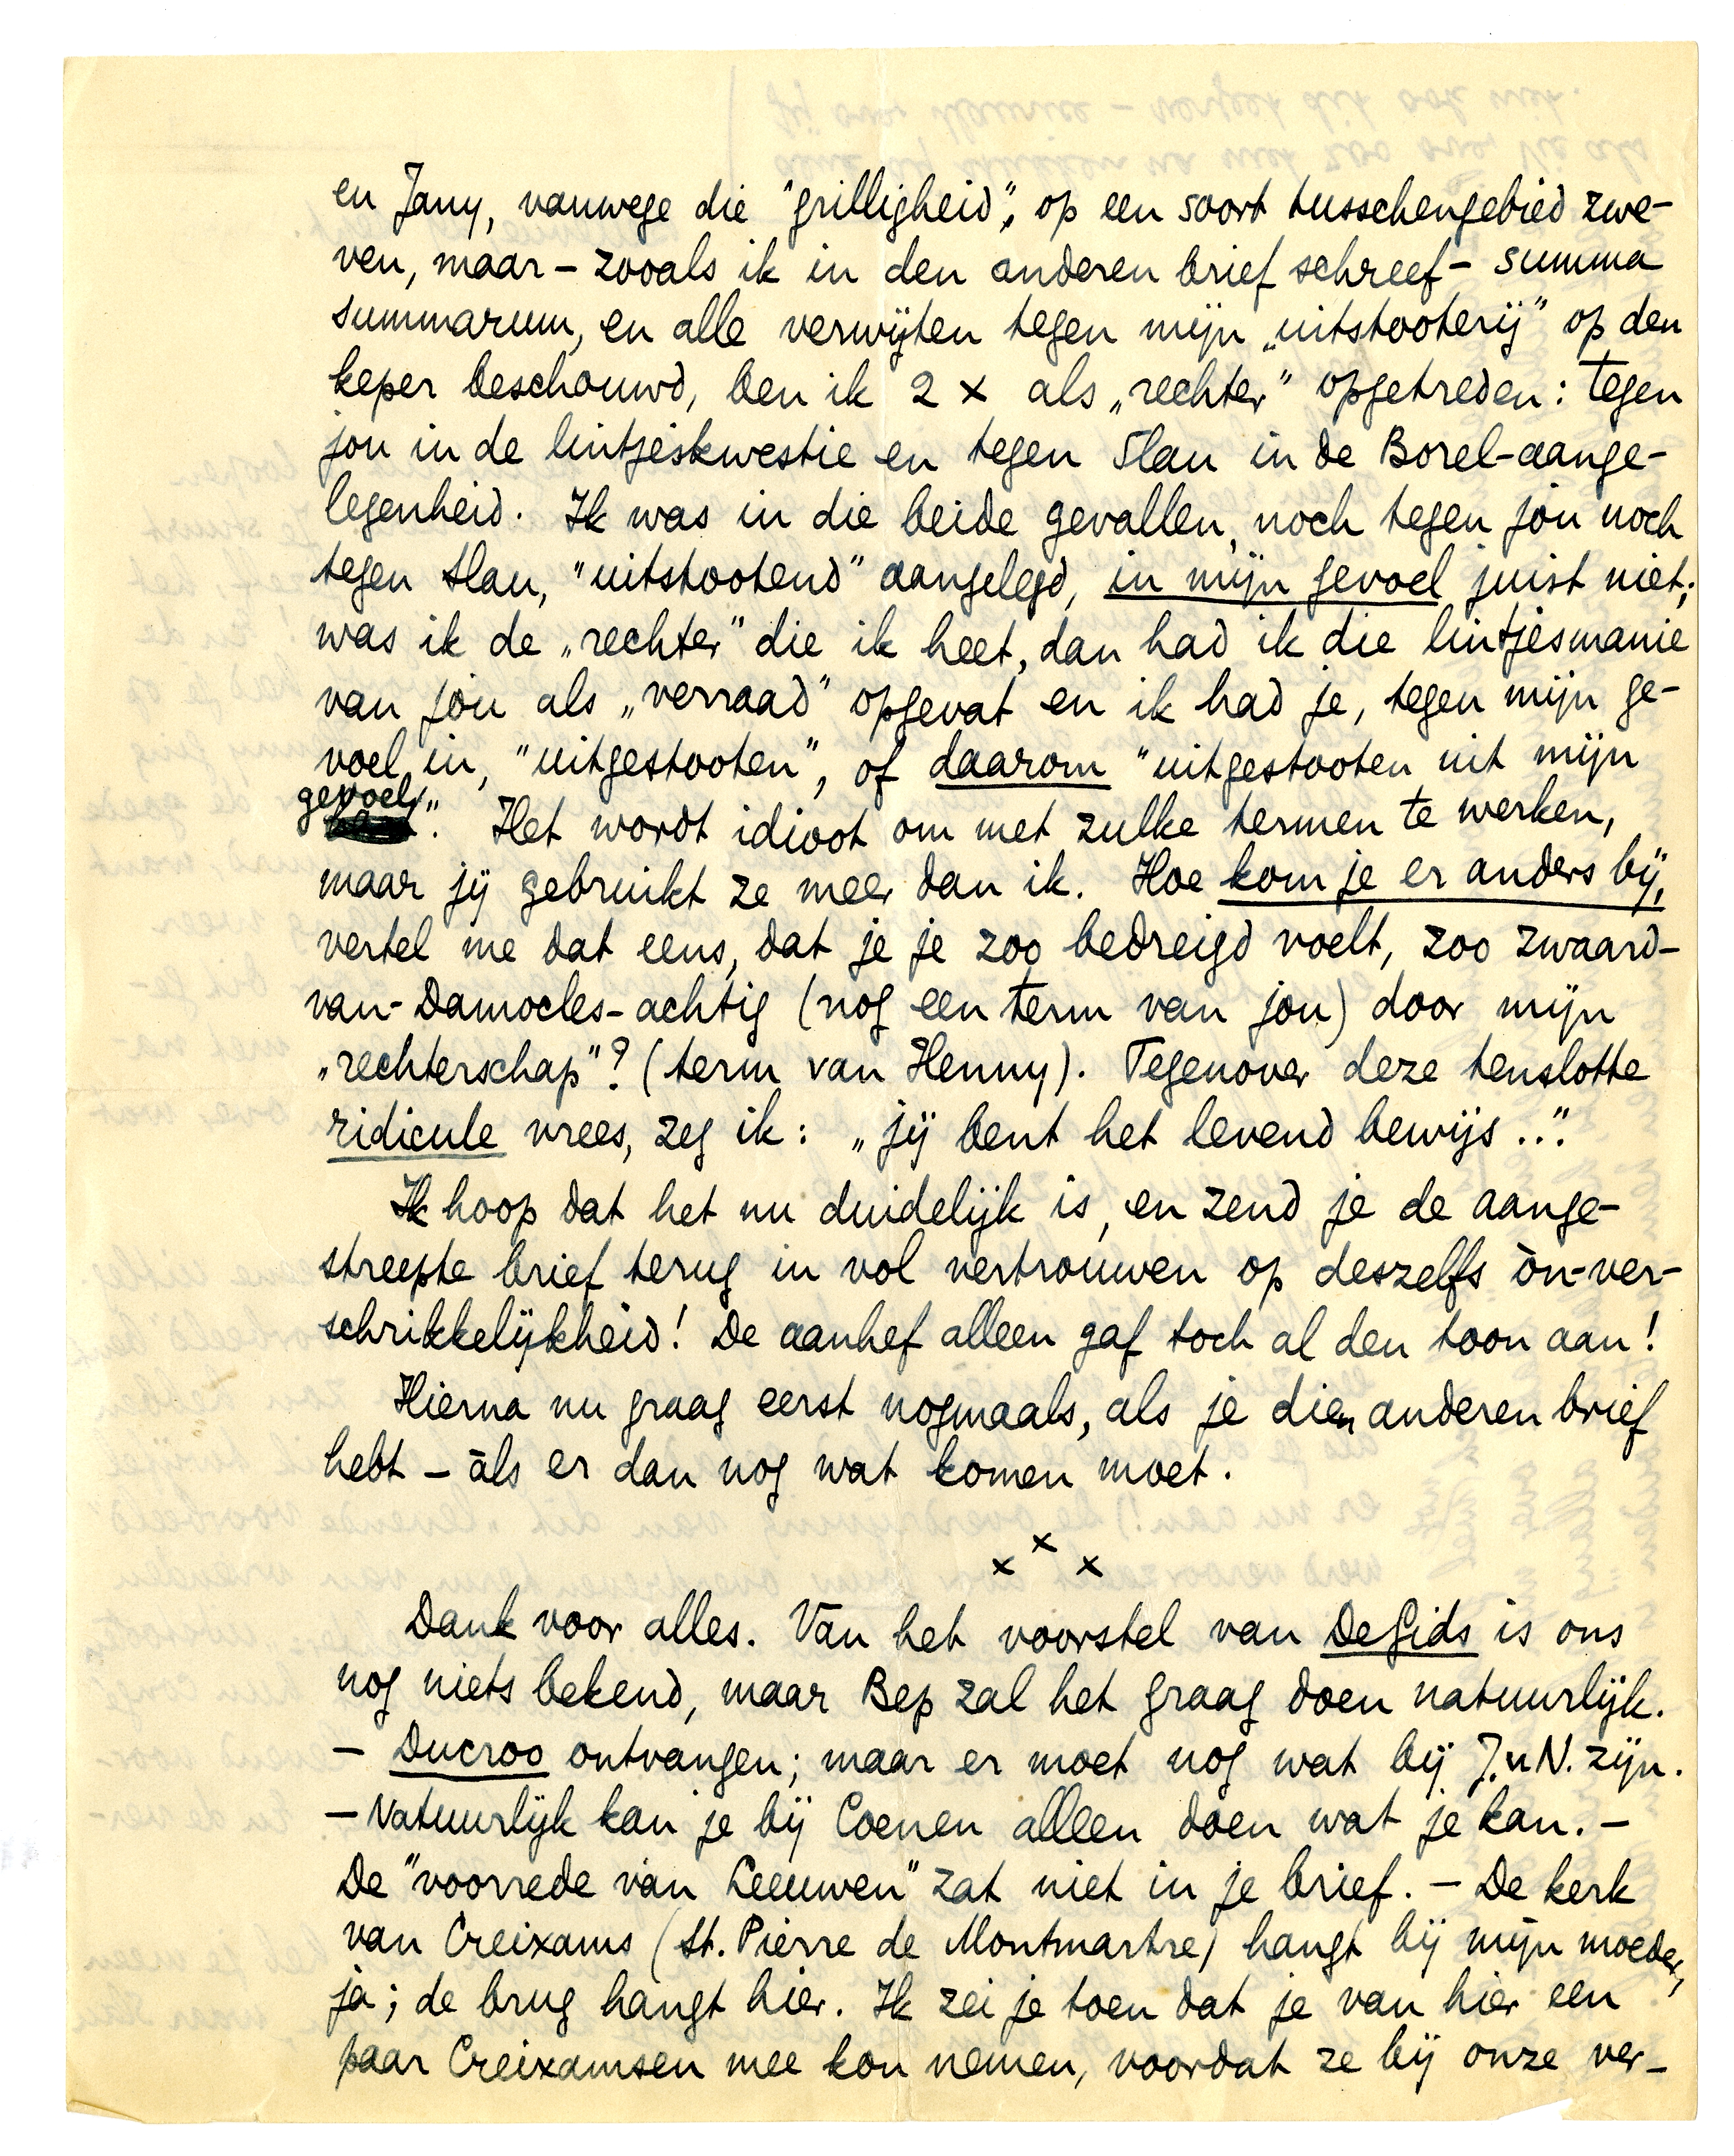 en Jany, vanwege die "grilligheid", op een soort tusschengebied zwe-
ven, maar – zooals ik in den anderen brief schreef – summa
summarum, en alle verwijten tegen mijn „uitstooterij" op den
keper beschouwd, ben ik 2 x als „rechter" opgetreden: tegen
jou in de lintjeskwestie en tegen Slau in de Borel-aange-
legenheid. Ik was in die beide gevallen, noch tegen jou noch
tegen Slau, "uitstootend" aangelegd, in mijn gevoel juist niet;
was ik de „rechter" die ik heet, dan had ik die lintjesmanie
van jou als „verraad" opgevat en ik had je, tegen mijn ge-
voel in, "uitgestooten", of daarom "uitgestooten uit mijn
gevoel". Het wordt idioot om met zulke termen te werken,
maar jij gebruikt ze meer dan ik. Hoe kom je er anders bij,
vertel me dat eens, dat je je zoo bedreigd voelt, zoo zwaard-
van-Damocles-achtig (nog een term van jou) door mijn
„rechterschap"? (term van Henny). Tegenover deze tenslotte
ridicule vrees, zeg ik: „jij bent het levend bewijs..."
Ik hoop dat het nu duidelijk is, en zend je de aange-
streepte brief terug in vol vertrouwen op deszelfs òn-ver-
schrikkelijkheid! De aanhef alleen gaf toch al den toon aan!
Hierna nu graag eerst nogmaals, als je dien anderen brief
hebt – àls er dan nog wat komen moet.
x x x
Dank voor alles. Van het voorstel van De Gids is ons
nog niets bekend, maar Bep zal het graag doen natuurlijk.
– Ducroo ontvangen; maar er moet nog wat bij J.v.N. zijn.
– Natuurlijk kan je bij Coenen alleen doen wat je kan. –
De "voorrede van Leeuwen" zat niet in je brief. – De kerk
van Creixams (St. Pierre de Montmartre) hangt bij mijn moeder,
ja; de brug hangt hier. Ik zei je toen dat je van hier een
paar Creixamsen mee kon nemen, voordat ze bij onze ver-